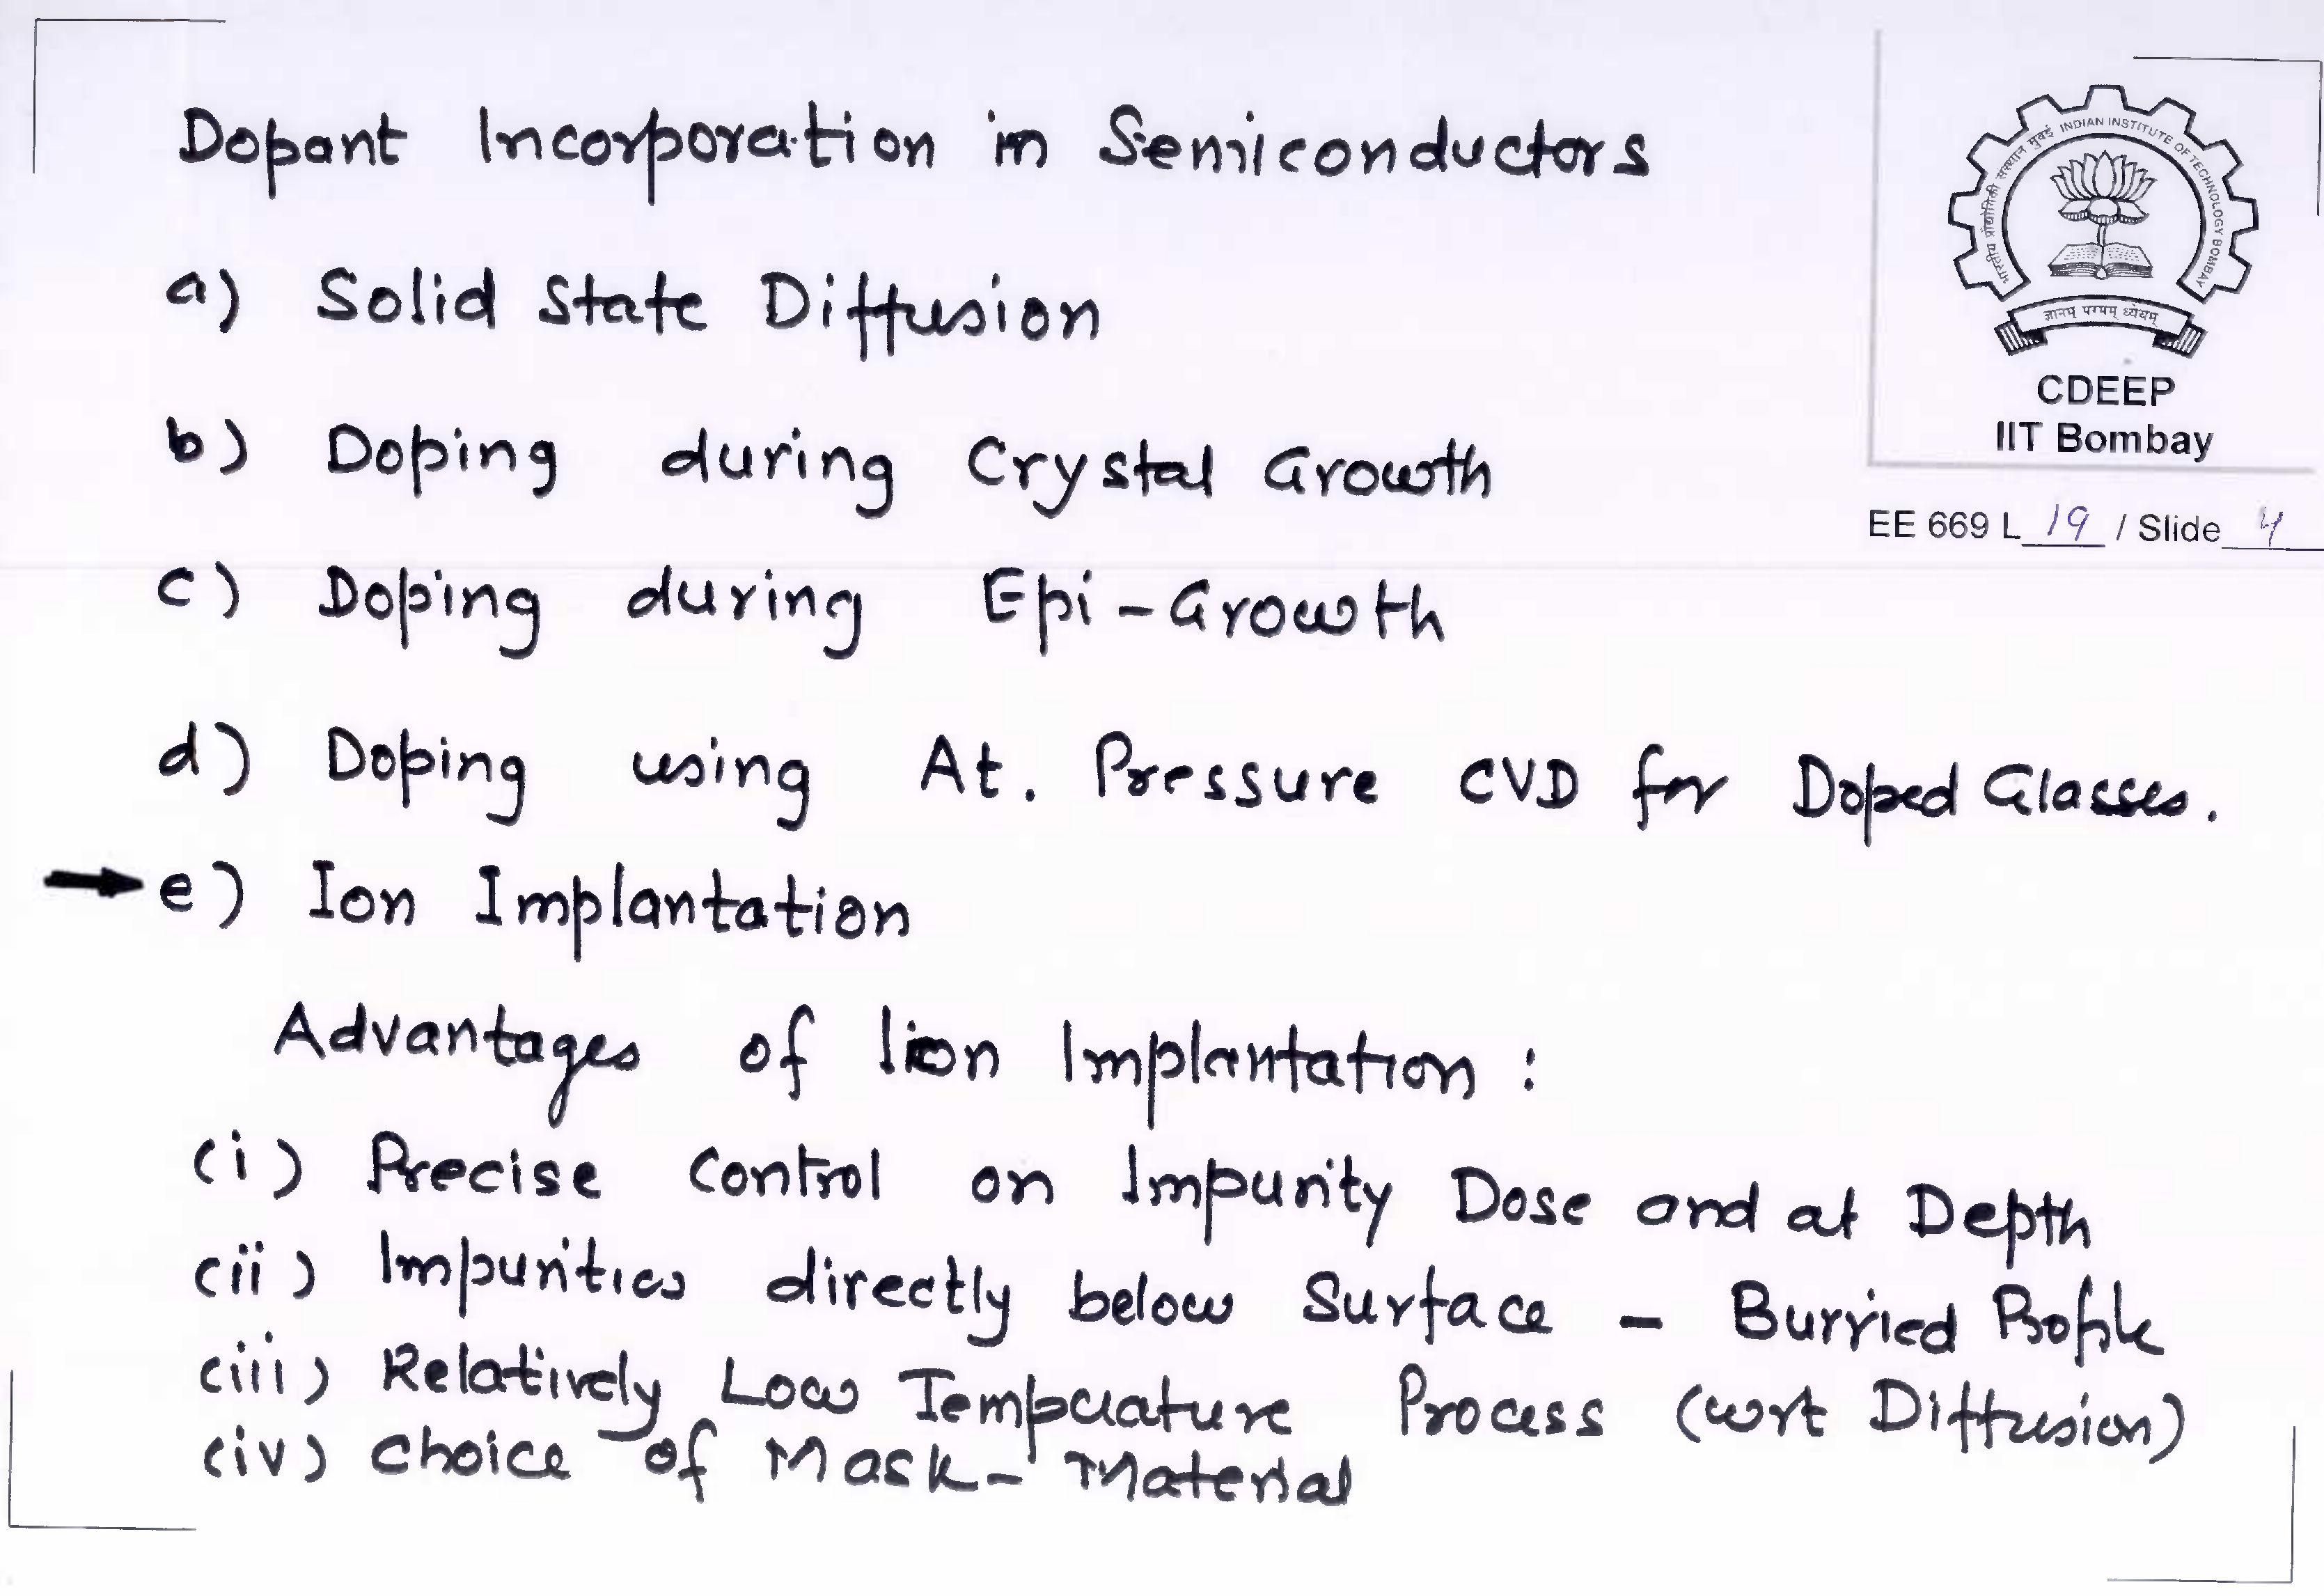 Dopant Incorporation in Semiconductors
a) Solid State Diffusion
b) Doping during Crystal Growth
c) Doping during Epi-Growth
d) Doping using At. Pressure CVD for Doped Glasses.
e) Ion Implantation
Advantages of Iion Implantation :
(i) Precise Control on Impurity Dose and at Depth
(ii) Impurities directly below Surface - Burried Profile
(iii) Relatively Low Temperature Process (wrt Diffusion)
(iv) Choice of Mask-Material
भारतीय प्रौद्योगिकी संस्थान मुंबई INDIAN INSTITUTE OF TECHNOLOGY BOMBAY
ज्ञानम् परमम् ध्येयम्
CDEEP
IIT Bombay
EE 669 L 19 / Slide 4